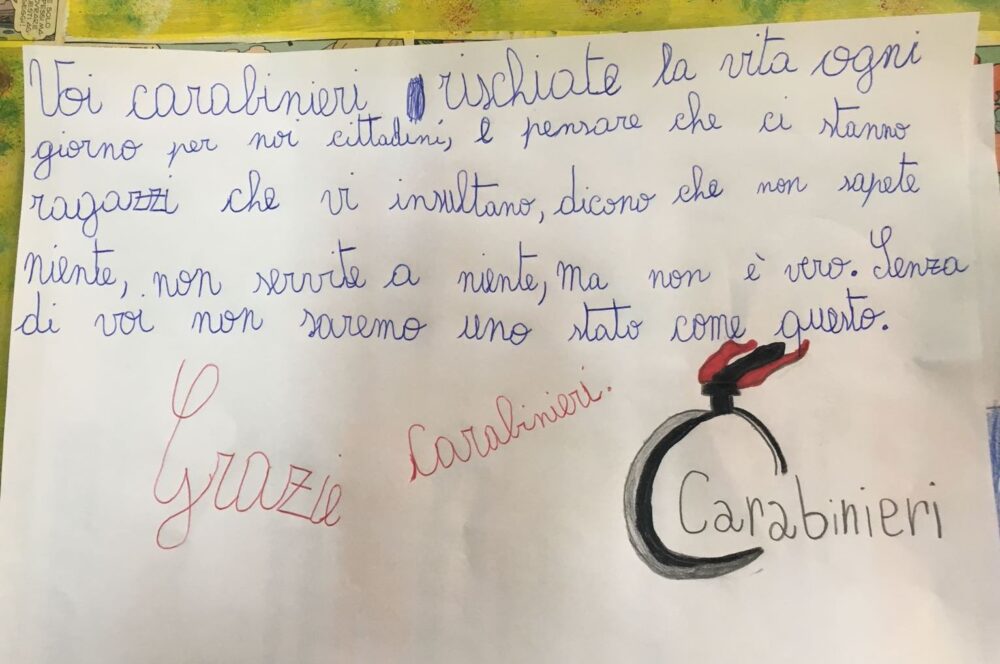 Voi carabinieri rischiate la vita ogni
giorno per noi cittadini, e pensare che ci stanno
ragazzi che vi insultano, dicono che non sapete
niente, non servite a niente, ma non è vero. Senza
di voi non saremo uno stato come questo.
Grazie carabinieri.
Carabinieri